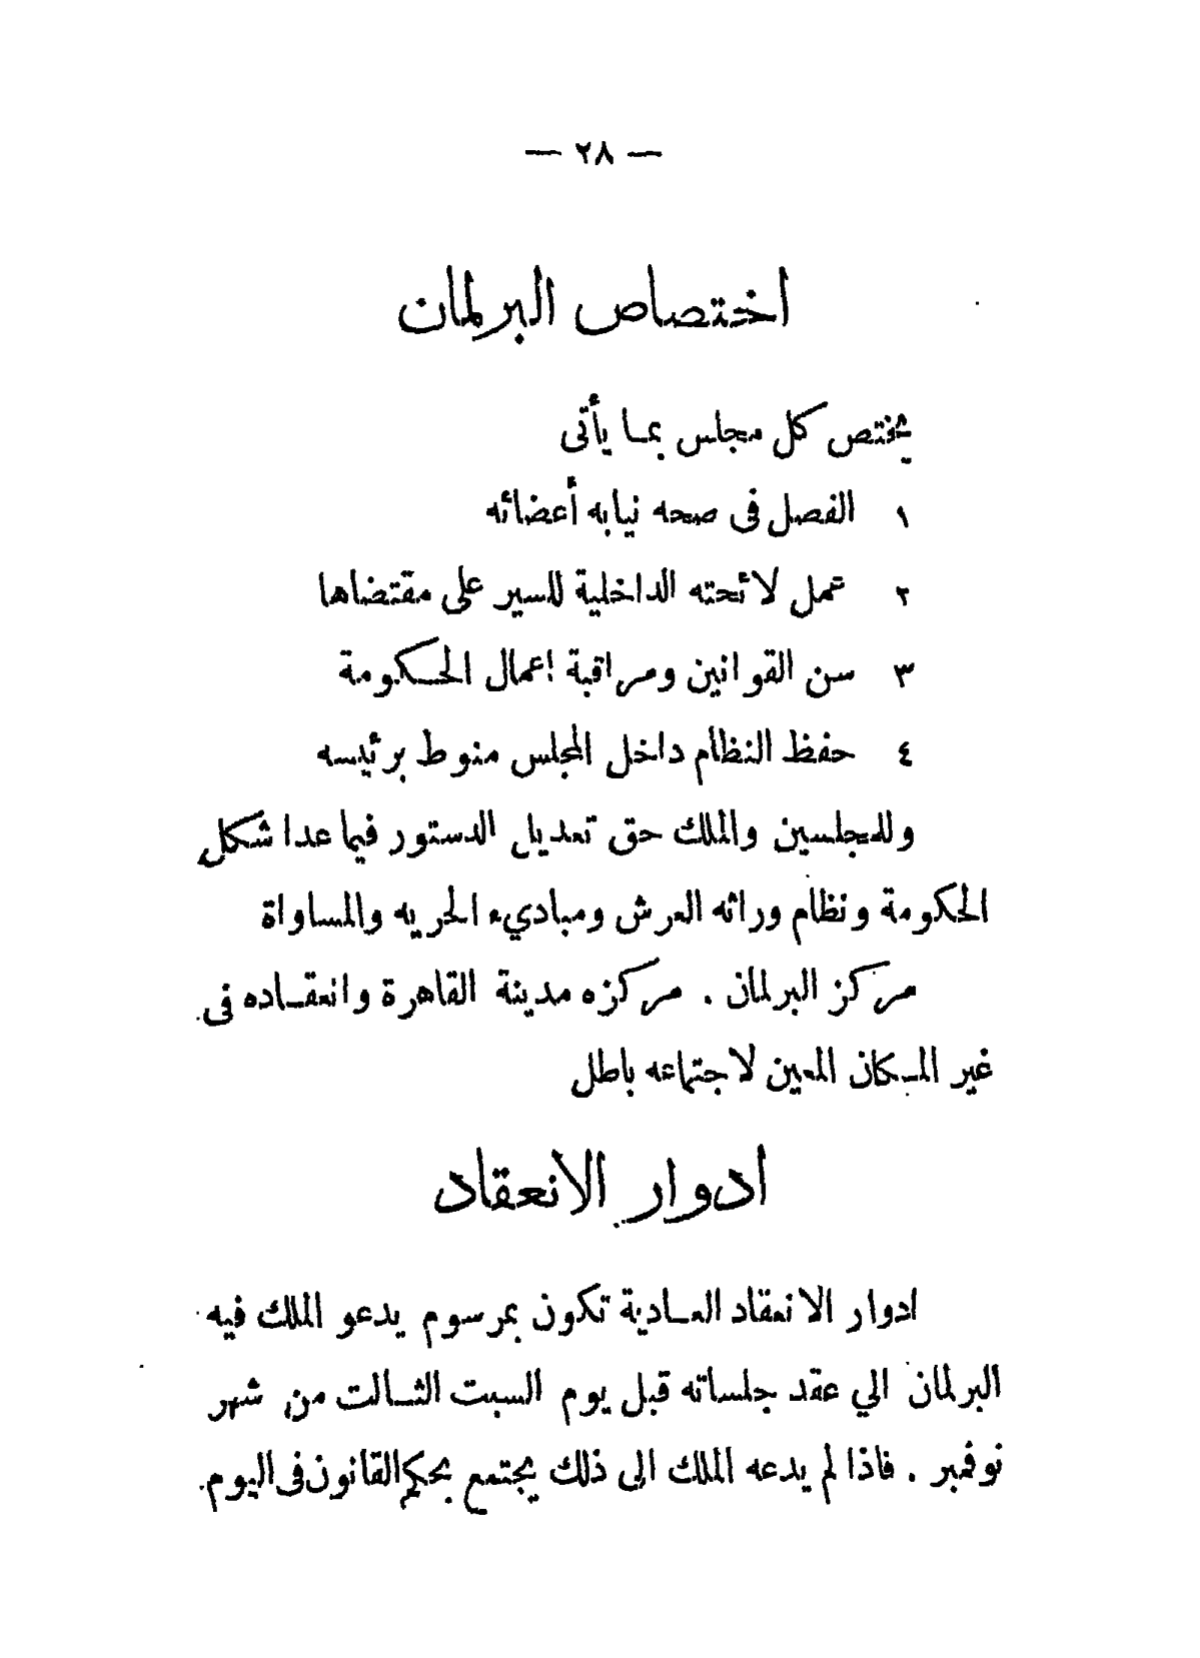 — ٢٨ —
اختصاص البرلمان
يختص كل مجلس بمـا يأتى
١ الفصل فى صحه نيابه أعضائه
٢ عمل لائحته الداخلية للسير على مقتضاها
٣ سن القوانين ومراقبة اعمال الحـكومة
٤ حفظ النظام داخل المجلس منوط برئيسه
وللمجلسين والملك حق تعديل الدستور فيما عدا شكل
الحكومة ونظام وراثه العرش ومباديء الحريه والمساواة
مركز البرلمان . مركزه مدينة القاهرة وانعقـاده فى
غير المـكان المعين لاجتماعه باطل
ادوار الانعقاد
ادوار الانعقاد العـادية تكون بمرسوم يدعو الملك فيه
البرلمان الي عقد جلساته قبل يوم السبت الثـالت من شهر
نوفمبر . فاذا لم يدعه الملك الى ذلك يجتمع بحكم القانون فى اليوم